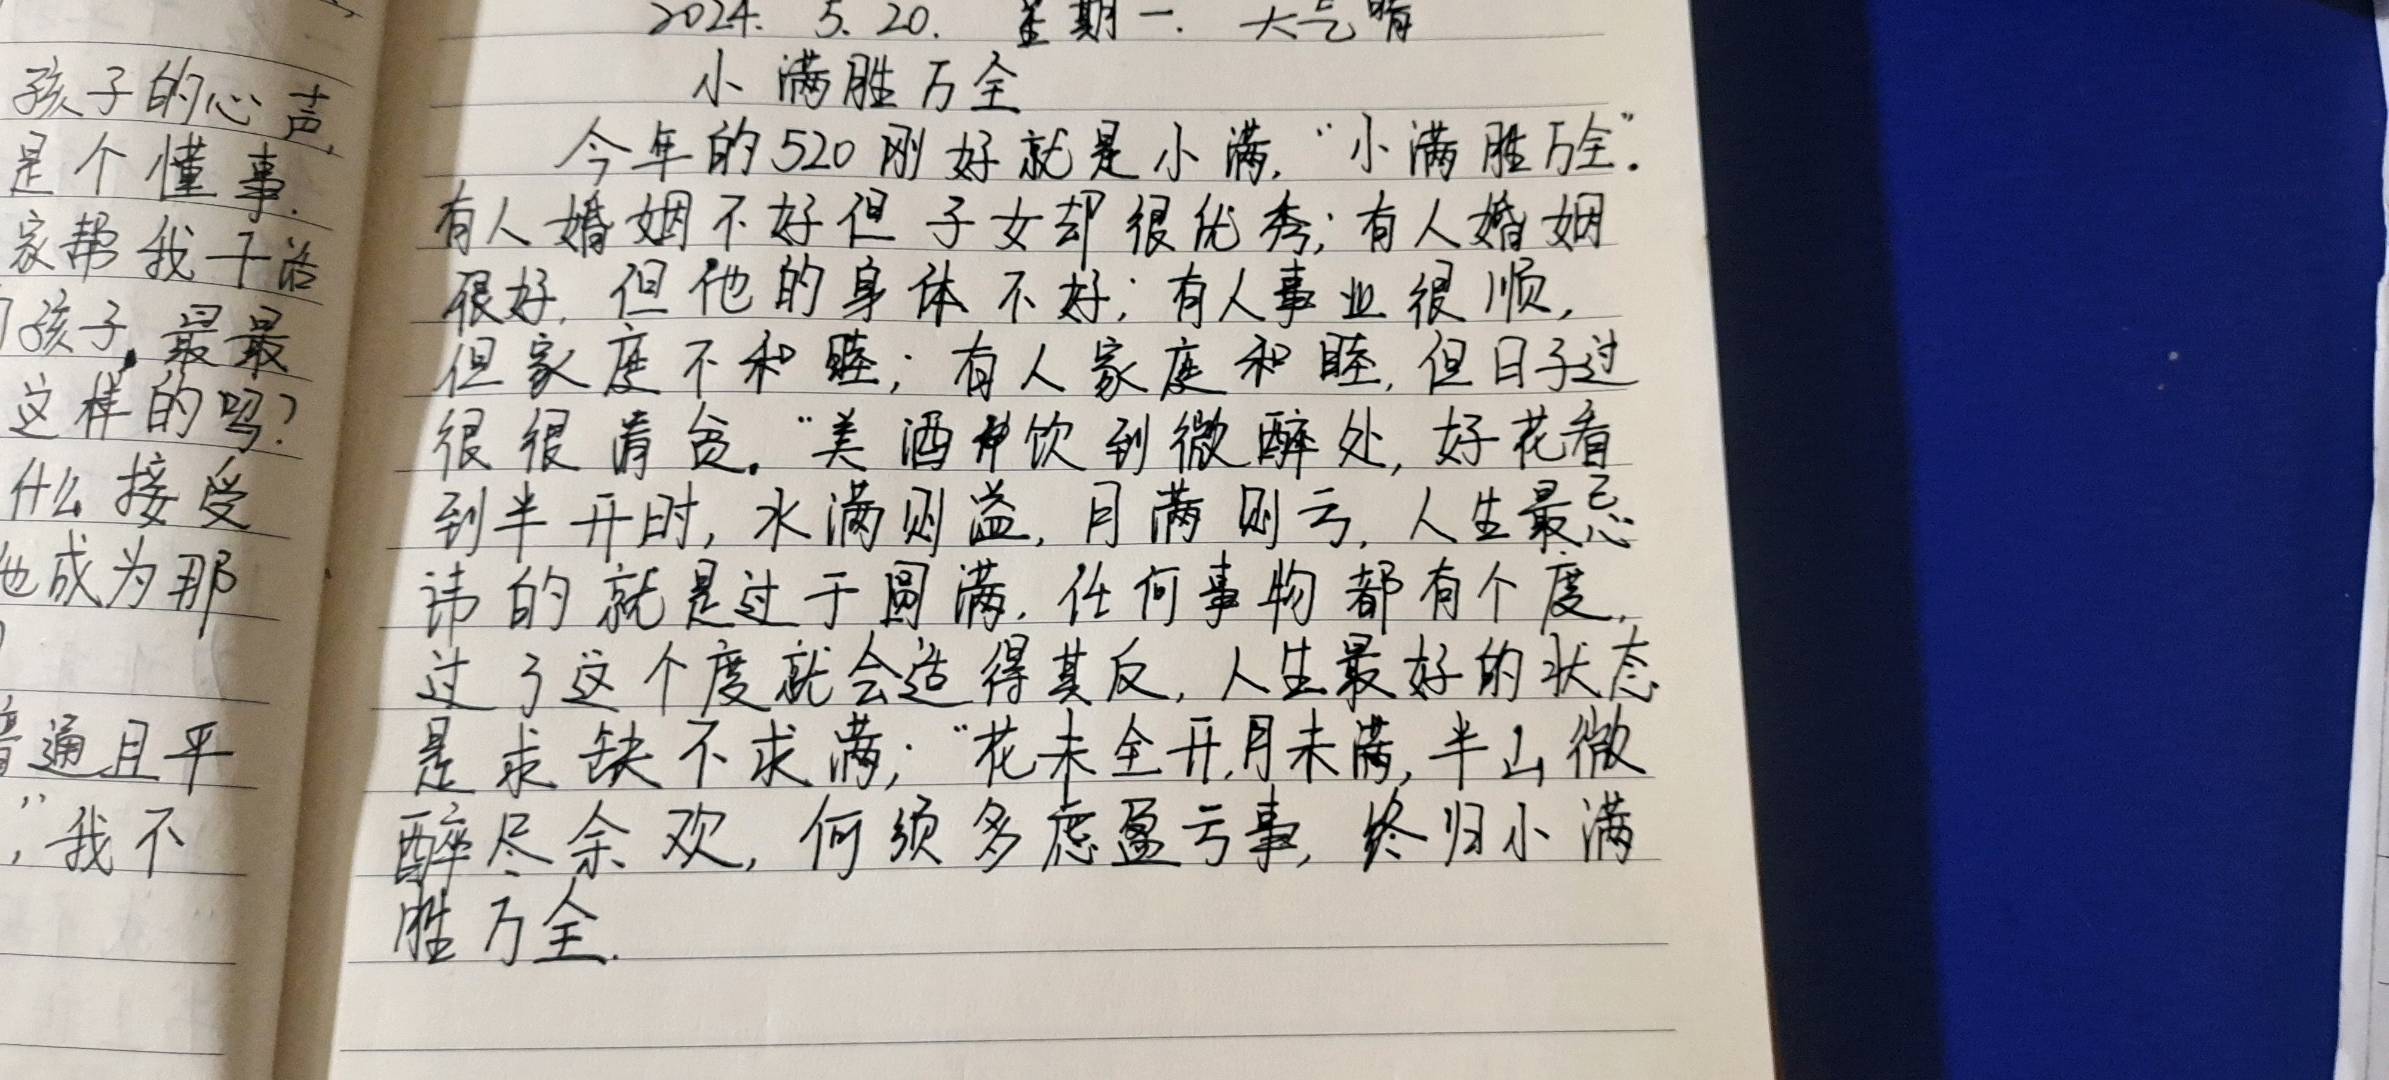 孩子的心声,
是个懂事.
家帮我干活
孩子,最最
这样的吗?
什么接受
他成为那
普通且平
",我不
2024. 5. 20. 星期一. 天气晴
小满胜万全
今年的520刚好就是小满,“小满胜万全”.
有人婚姻不好但子女却很优秀;有人婚姻
很好,但他的身体不好;有人事业很顺,
但家庭不和睦;有人家庭和睦,但日子过
很很清贫。“美酒饮到微醉处,好花看
到半开时,水满则溢,月满则亏,人生最忌
讳的就是过于圆满,任何事物都有个度,
过了这个度就会适得其反,人生最好的状态
是求缺不求满;“花未全开,月未满,半山微
醉尽余欢,何须多虑盈亏事,终归小满
胜万全.